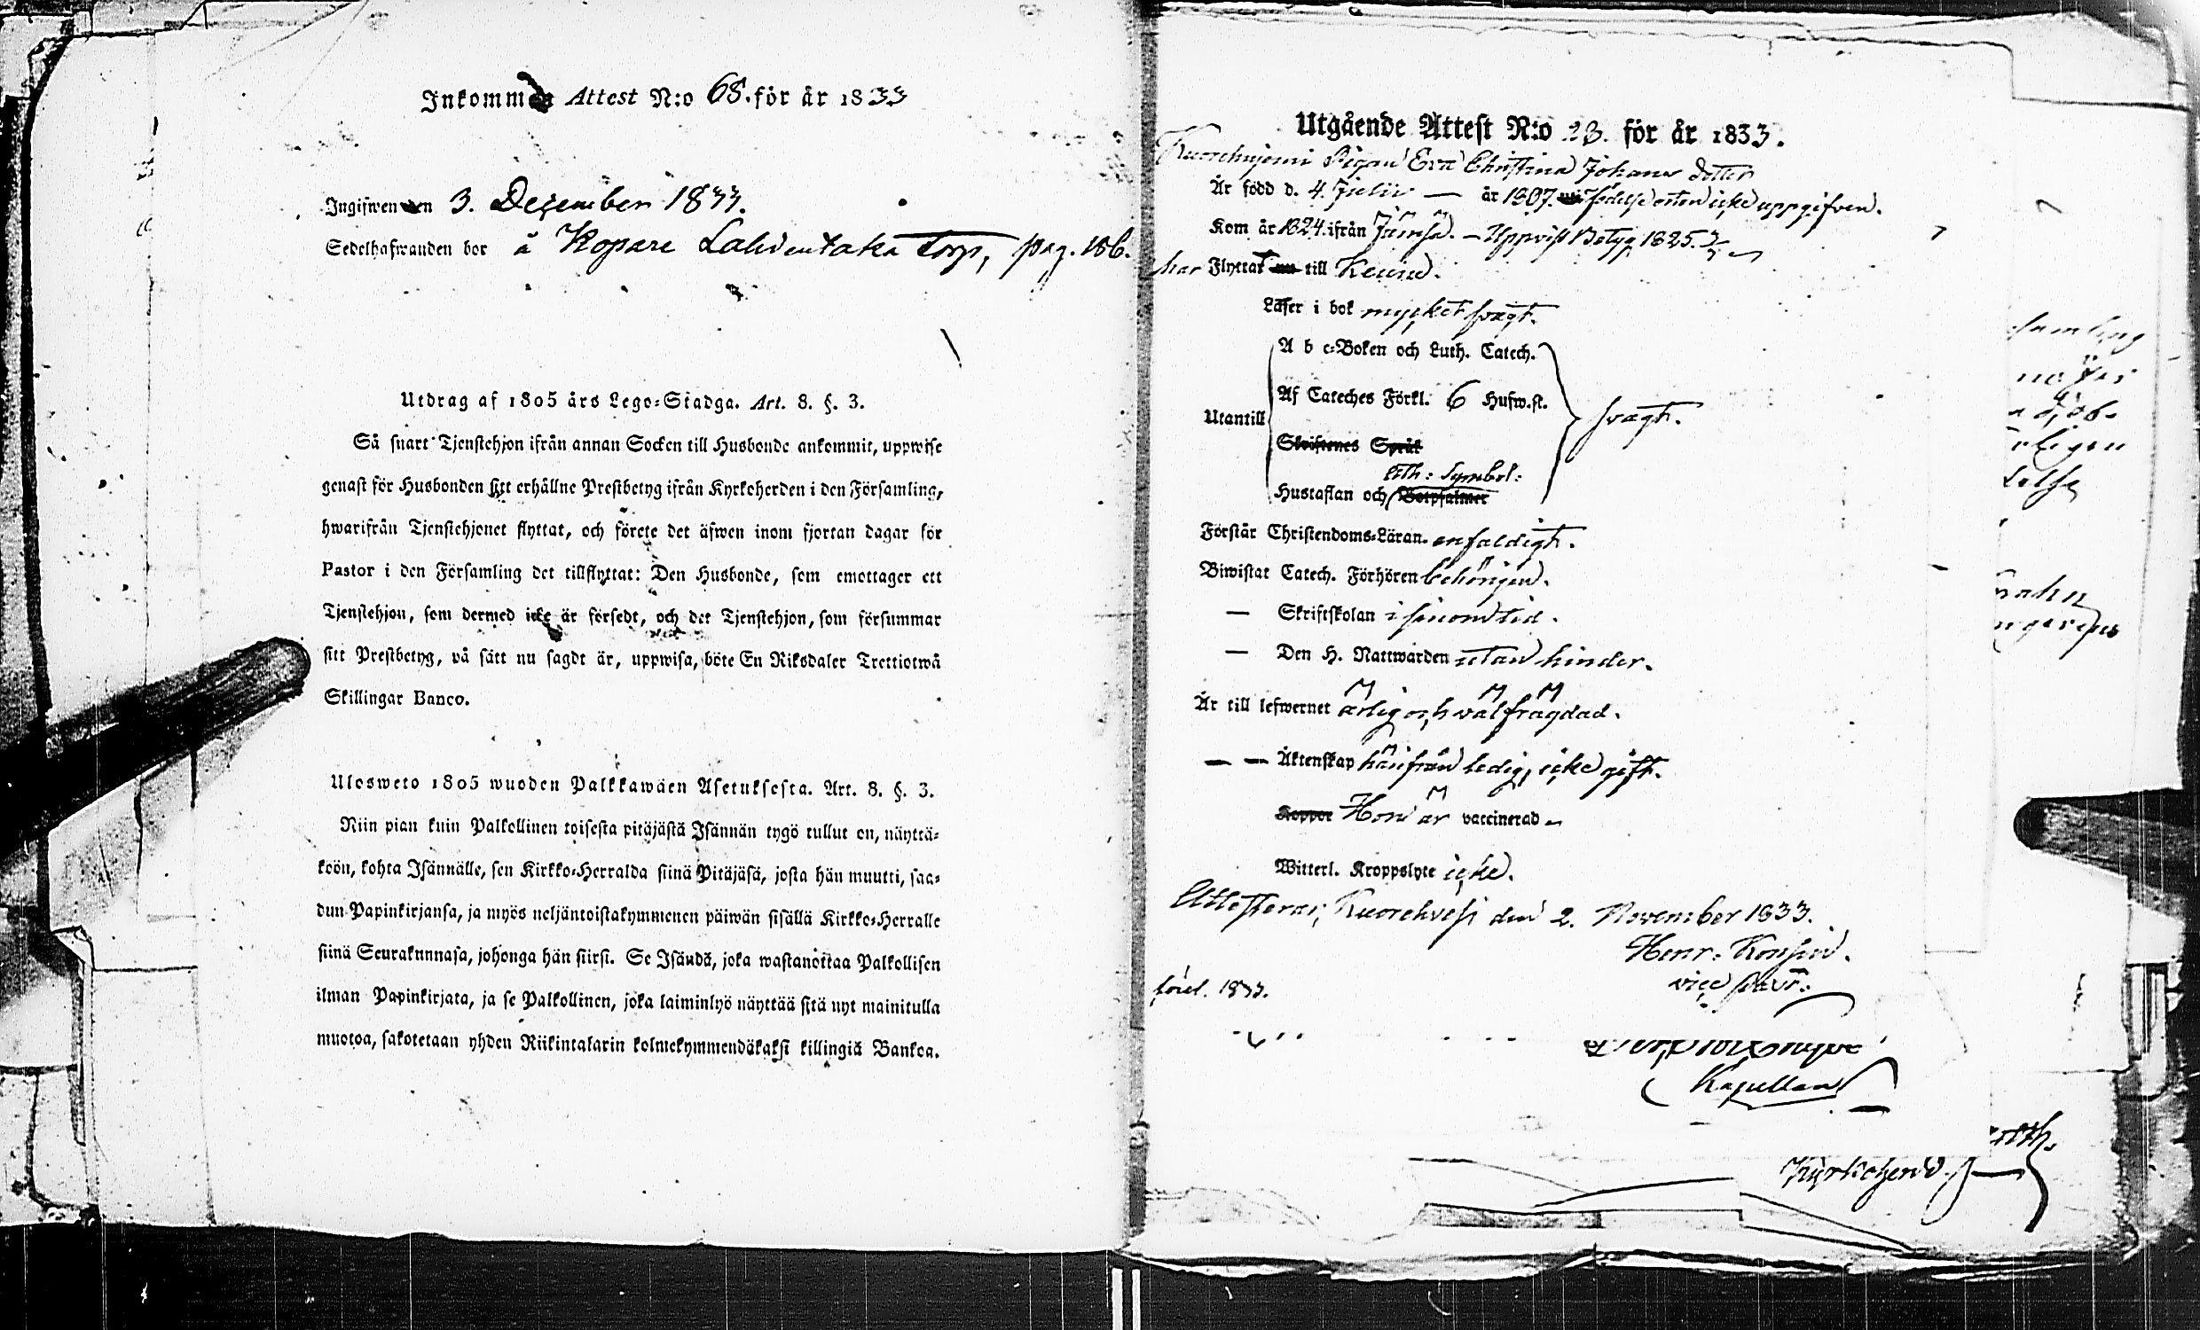 Inkommen Attest N:o 68. för år 1833
Ingifwen den 3. December 1833.
Sedelhafwanden bor å Kopare Lahdentaka Torp, pag. 186.
Utdrag af 1805 års Lego-Stadga. Art. 8. §. 3.
Så snart Tjenstehjon ifrån annan Socken till Husbonde ankommit, uppwise
genast för Husbonden sitt erhållne Prestbetyg ifrån Kyrkoherden i den Församling,
hwarifrån Tjenstehjonet flyttat, och förete det äfwen inom fjortan dagar för
Pastor i den Församling det tillflyttat: Den Husbonde, som emottager ett
Tjenstehjon, som dermed icke är försedt, och det Tjenstehjon, som försummar
sitt Prestbetyg, på sätt nu sagdt är, uppwisa, böte En Riksdaler Trettiotwå
Skillingar Banco.
Ulosweto 1805 wuoden Palkkawäen Asetuksesta. Art. 8. §. 3.
Niin pian kuin Palkollinen toisesta pitäjästä Isännän tygö tullut on, näyttä-
köön, kohta Isännälle, sen Kirkko-Herralda siinä Pitäjäsä, josta hän muutti, saa-
dun Papinkirjansa, ja myös neljäntoistakymmenen päiwän sisällä Kirkko-Herralle
siinä Seurakunnasa, johonga hän siirsi. Se Isändä, joka wastanottaa Palkollisen
ilman Papinkirjata, ja se Palkollinen, joka laiminlyö näyttää sitä nyt mainitulla
muotoa, sakotetaan yhden Riikintalarin kolmekymmendäkaksi killingiä Bankoa.
Utgående Attest N:o 23. för år 1833.
Pigan Eva Christina Johans dotter
Är född d. 4. Julii — år 1807. födelse orten icke uppgifven.
Kom år 1824 ifrån Jämsä. - Uppvist Betyg 1825.
har Flyttat nu till Keuru.
Läser i bok mycket svagt.
A b c-Boken och Luth. Catech.
Af Cateches Förkl. 6 Hufw.st.
Utantill svagt.
Skriftenes Språk
Ath: Symbol:
Hustaflan och Botpsalmer
Förstår Christendoms-Läran enfaldigt.
Biwistat Catech. Förhören behörigen.
— Skriftskolan i sinom tid.
— Den H. Nattwarden utan hinder.
Är till lefwernet ärlig och välfrägdad.
— — Äktenskap härifrån ledig, icke gift.
Koppor Hon är vaccinerad
Witterl. Kroppslyte icke.
Attesterar, Kuorehvesi den 2. November 1833.
Henr: Konsin.
vice past:
1833.
Kapellan
Kyrkoherd.